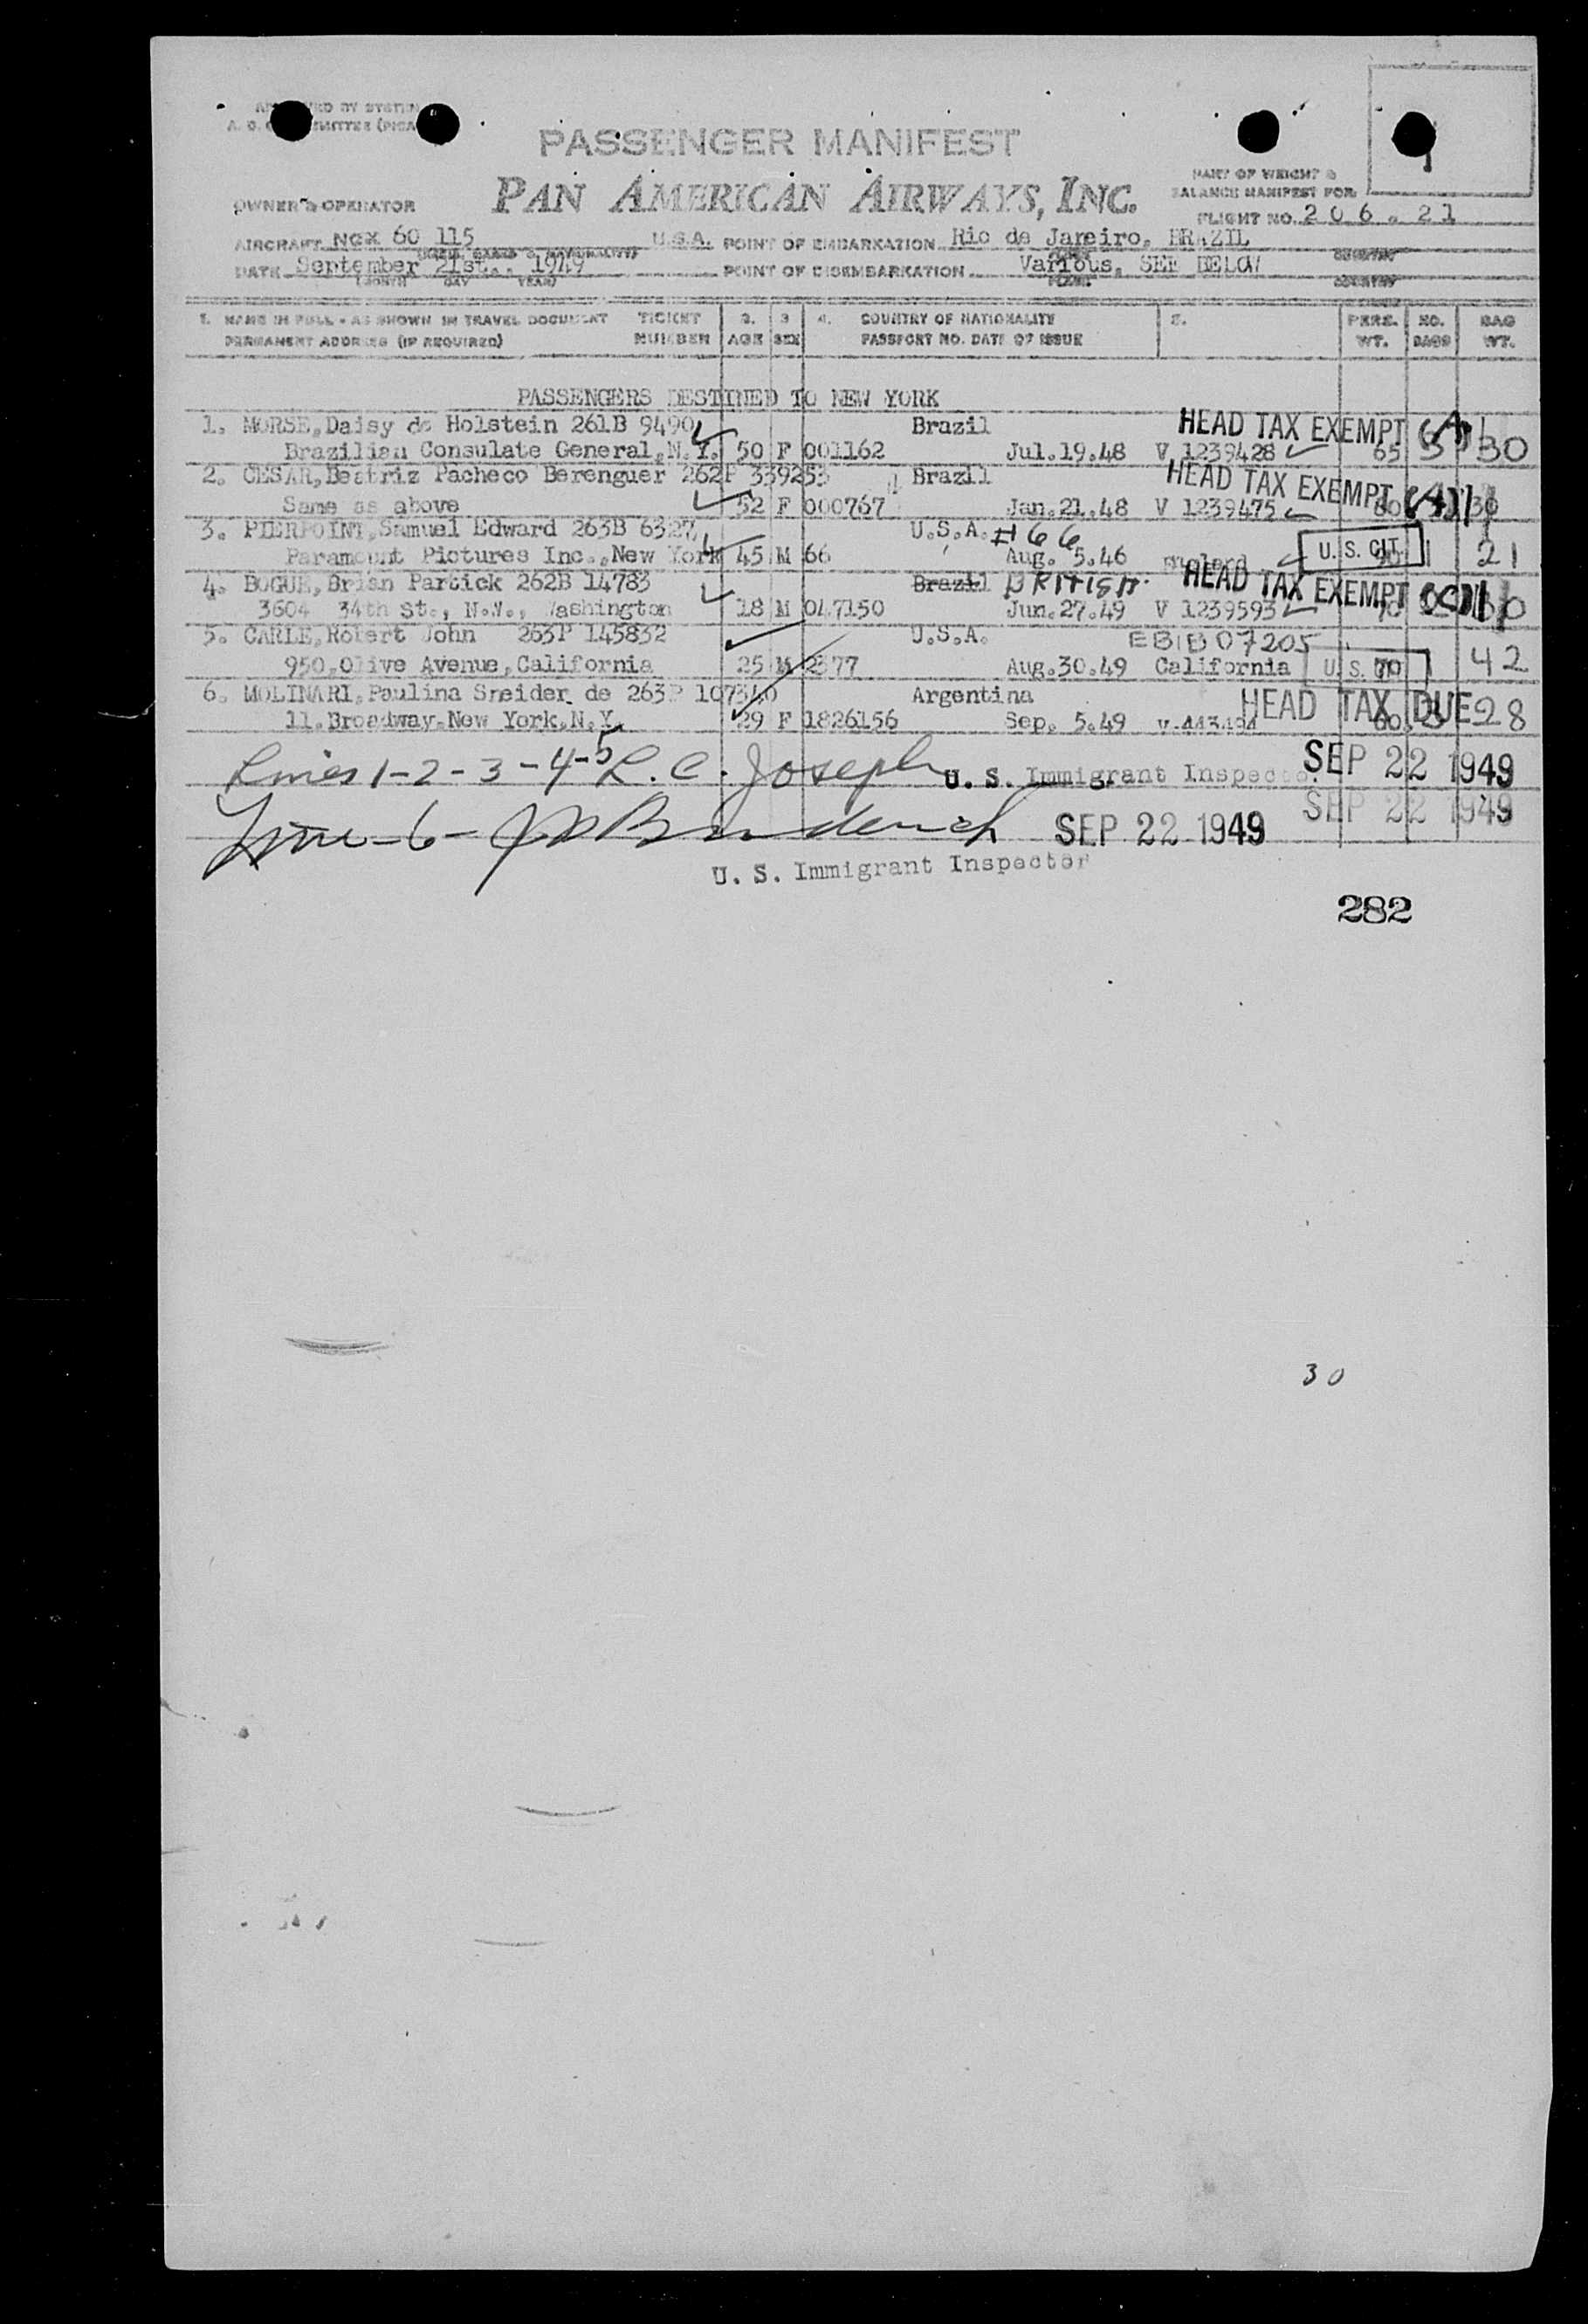 PASSENGER MANIFEST
PAN AMERICAN AIRWAYS, INC.
PART OF WEIGHT &
BALANCE MANIFEST FOR
OWNER & OPERATOR
FLIGHT NO. 206.21
AIRCRAFT NCX 60 115 U.S.A. POINT OF EMBARKATION Rio de Janeiro, BRAZIL
DATE September 21st., 1949 POINT OF DISEMBARKATION Various, SEE BELOW
(MONTH DAY YEAR) PLACE COUNTRY
1. NAME IN FULL - AS SHOWN IN TRAVEL DOCUMENT TICKET 2. 3 4. COUNTRY OF NATIONALITY 5. PERS. NO. BAG
PERMANENT ADDRESS (IF REQUIRED) NUMBER AGE SEX PASSPORT NO. DATE OF ISSUE WT. BAGS WT.
PASSENGERS DESTINED TO NEW YORK
1. MORSE,Daisy de Holstein 261B 9490 Brazil HEAD TAX EXEMPT
Brazilian Consulate General,N.Y. 50 F 001162 Jul.19.48 V 1239428 65 30
2. CESAR,Beatriz Pacheco Berenguer 262P 339253 Brazil HEAD TAX EXEMPT
Same as above 52 F 000767 Jan.21.48 V 1239475 30
3. PIERPOINT,Samuel Edward 263B 6327 U.S.A. #66
Paramount Pictures Inc.,New York 45 M 66 Aug. 5.46 England U.S. CIT 1 21
4. BOGUE,Brian Partick 262B 14783 Brazil BRITISH HEAD TAX EXEMPT
3604 34th St., N.W., Washington 18 M 047150 Jun.27.49 V 1239593 70
5. CARLE,Robert John 263P 145832 U.S.A. EBIB07205
950.Olive Avenue,California 25 M 2377 Aug.30.49 California U.S. 1 42
6. MOLINARI,Paulina Sneider de 263P 107340 Argentina HEAD TAX DUE
11.Broadway.New York.N.Y. 29 F 1826156 Sep. 5.49 28
Lines 1-2-3-4-5 L. C. Joseph U. S. Immigrant Inspector. SEP 22 1949
SEP 22 1949
Line-6- SEP 22 1949
U. S. Immigrant Inspector
282
30